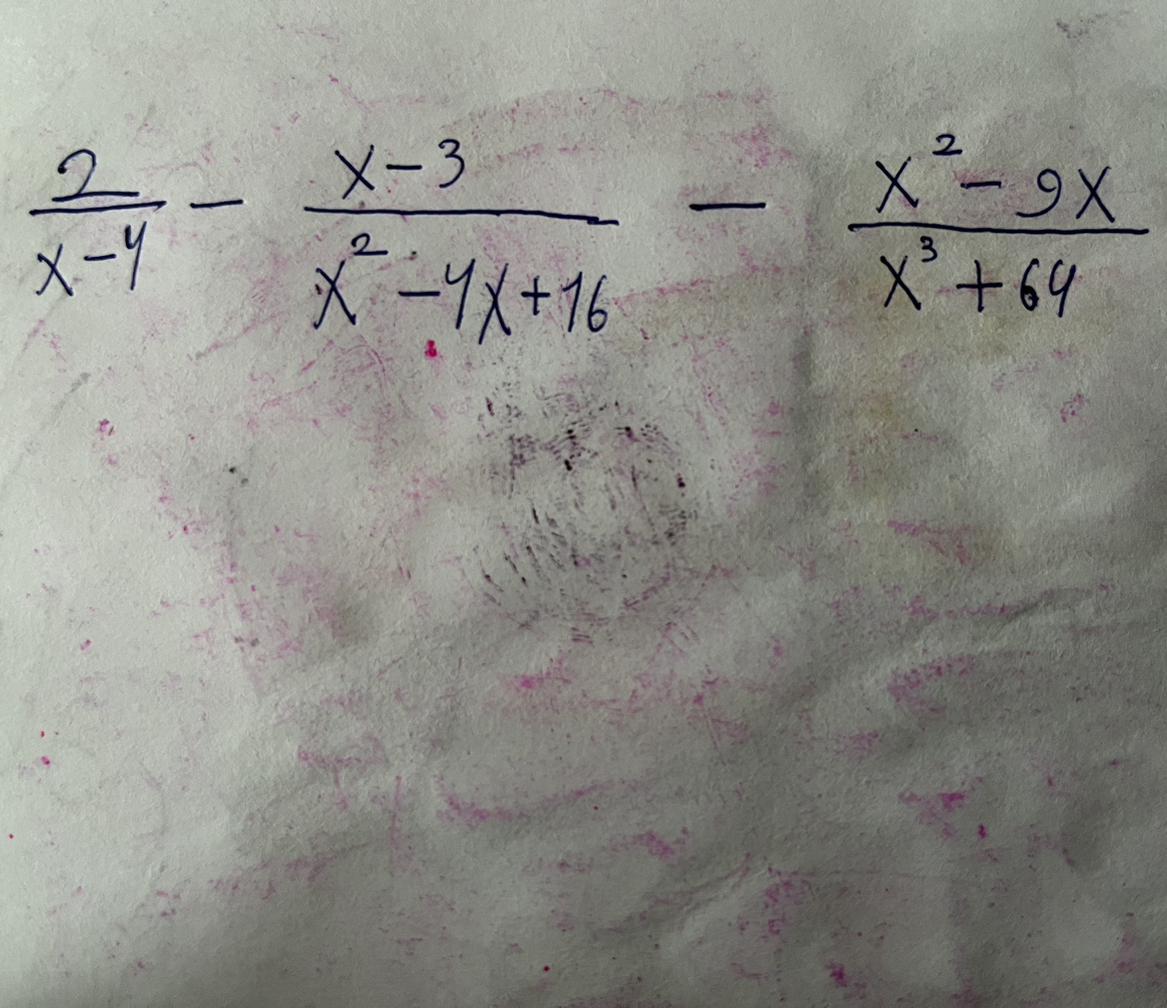 2/(x-4) - (x-3)/(x² - 4x + 16) - (x² - 9x)/(x³ + 64)